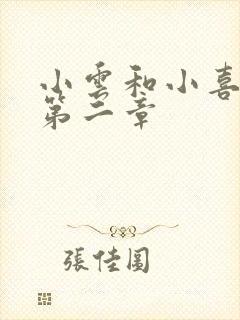 小雲和小喜
第二章
張佳圓